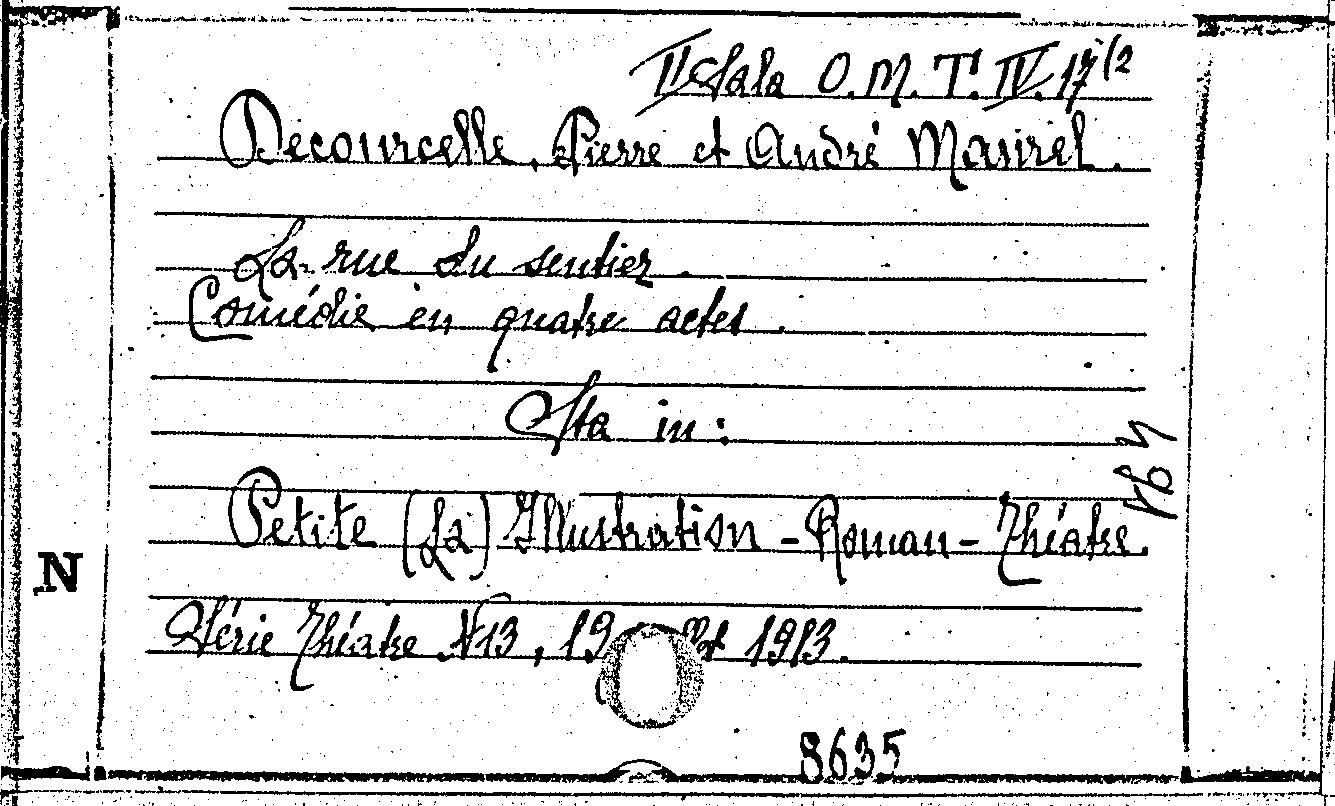 II Sala O. M. T. IV. 17/2
Decourcelle, Pierre et André Maurel.
La rue du sentier.
Comédie en quatre actes.
Sta in:
Petite (La) Illustration - Roman - Théatre.
Série théatre N 13, 19 1913.
N
8635